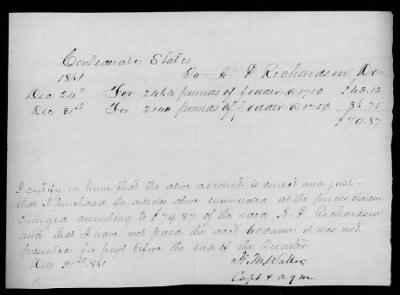 Confederate States
1861 To A P Richardson Dr
Dec 24th For 2464 pounds of fodder @ 1750 $43.12
Dec 31st For 2100 pounds of fodder @ 1750 36.75
$79.87
I certify on honor that the above account is correct and just -
that I purchased the articles above enumerated at the prices therein
charged amounting to $79.87 of the said A P Richardson
and that I have not paid the acct because it was not
presented for paymt before the end of the Quarter
Dec 31st 1861
Capt & aqm